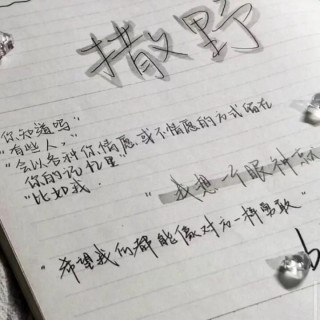 撒野
"你知道吗"
"有些人,"
"会以各种你情愿或不情愿的方式留在
你的记忆里"
"比如我.
"我想一个眼神就
"希望我们都能像对方一样勇敢"
b